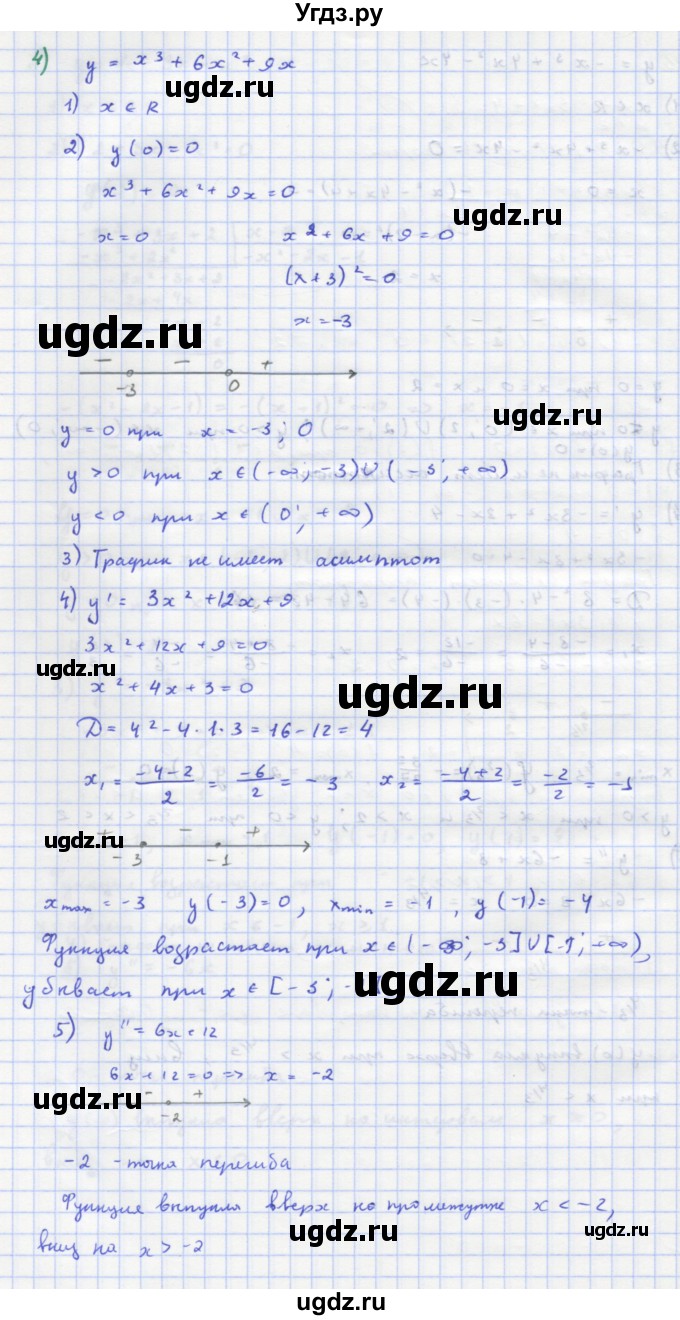 Угдз.ру
4) y = x³ + 6x² + 9x
ugdz.ru
1) x ∈ R
2) y(0) = 0
x³ + 6x² + 9x = 0
ugdz.ru
x = 0 x² + 6x + 9 = 0
(x+3)² = 0
ugdz.ru
x = -3
− − +
-3 0
ugdz.ru
y = 0 при x = -3; 0
y > 0 при x ∈ (-∞; -3) ∪ (-3; +∞)
y < 0 при x ∈ (0; +∞)
3) График не имеет асимптот
4) y' = 3x² + 12x + 9
3x² + 12x + 9 = 0
ugdz.ru
x² + 4x + 3 = 0
ugdz.ru
D = 4² - 4·1·3 = 16 - 12 = 4
x₁ = (-4-2)/2 = -6/2 = -3 x₂ = (-4+2)/2 = -2/2 = -1
+ − +
ugdz.ru
-3 -1
x max = -3 y(-3) = 0, x min = -1, y(-1) = -4
Функция возрастает при x ∈ (-∞; -3] ∪ [-1; +∞),
убывает при x ∈ [-3; -
ugdz.ru
5) y'' = 6x + 12
6x + 12 = 0 => x = -2
ugdz.ru
− +
-2
-2 - точка перегиба
Функция выпукла вверх на промежутке x < -2,
ugdz.ru
вниз на x > -2
ugdz.ru
ugdz.ru